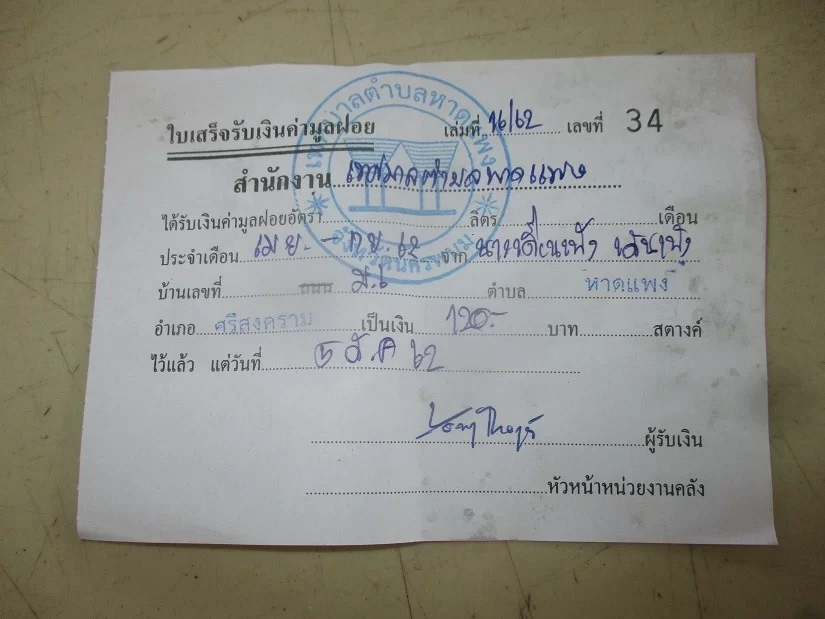 เทศบาลตำบลหาดแพง
จังหวัดนครพนม
ใบเสร็จรับเงินค่ามูลฝอย เล่มที่ ๖/62 เลขที่ 34
สำนักงาน เทศบาลตำบลหาดแพง
ได้รับเงินค่ามูลฝอยอัตรา ลิตร เดือน
ประจำเดือน เม.ย. - ก.ย. 62 จาก
บ้านเลขที่ ถนน ม.6 ตำบล หาดแพง
อำเภอ ศรีสงคราม เป็นเงิน 120.- บาท สตางค์
ไว้แล้ว แต่วันที่ ส.ค 62
ผู้รับเงิน
หัวหน้าหน่วยงานคลัง